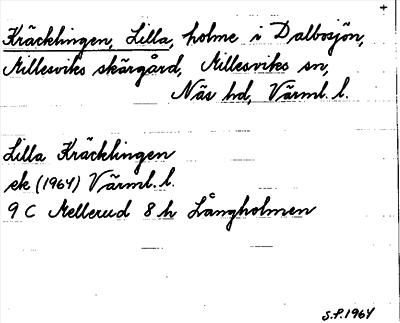 Kräcklingen, Lilla, holme i Dalbosjön,
Millesviks skärgård, Millesviks sn,
Näs hd, Värml. l.
Lilla Kräcklingen
ek (1964) Värml. l.
9 C Mellerud 8 h Långholmen
S.P. 1964